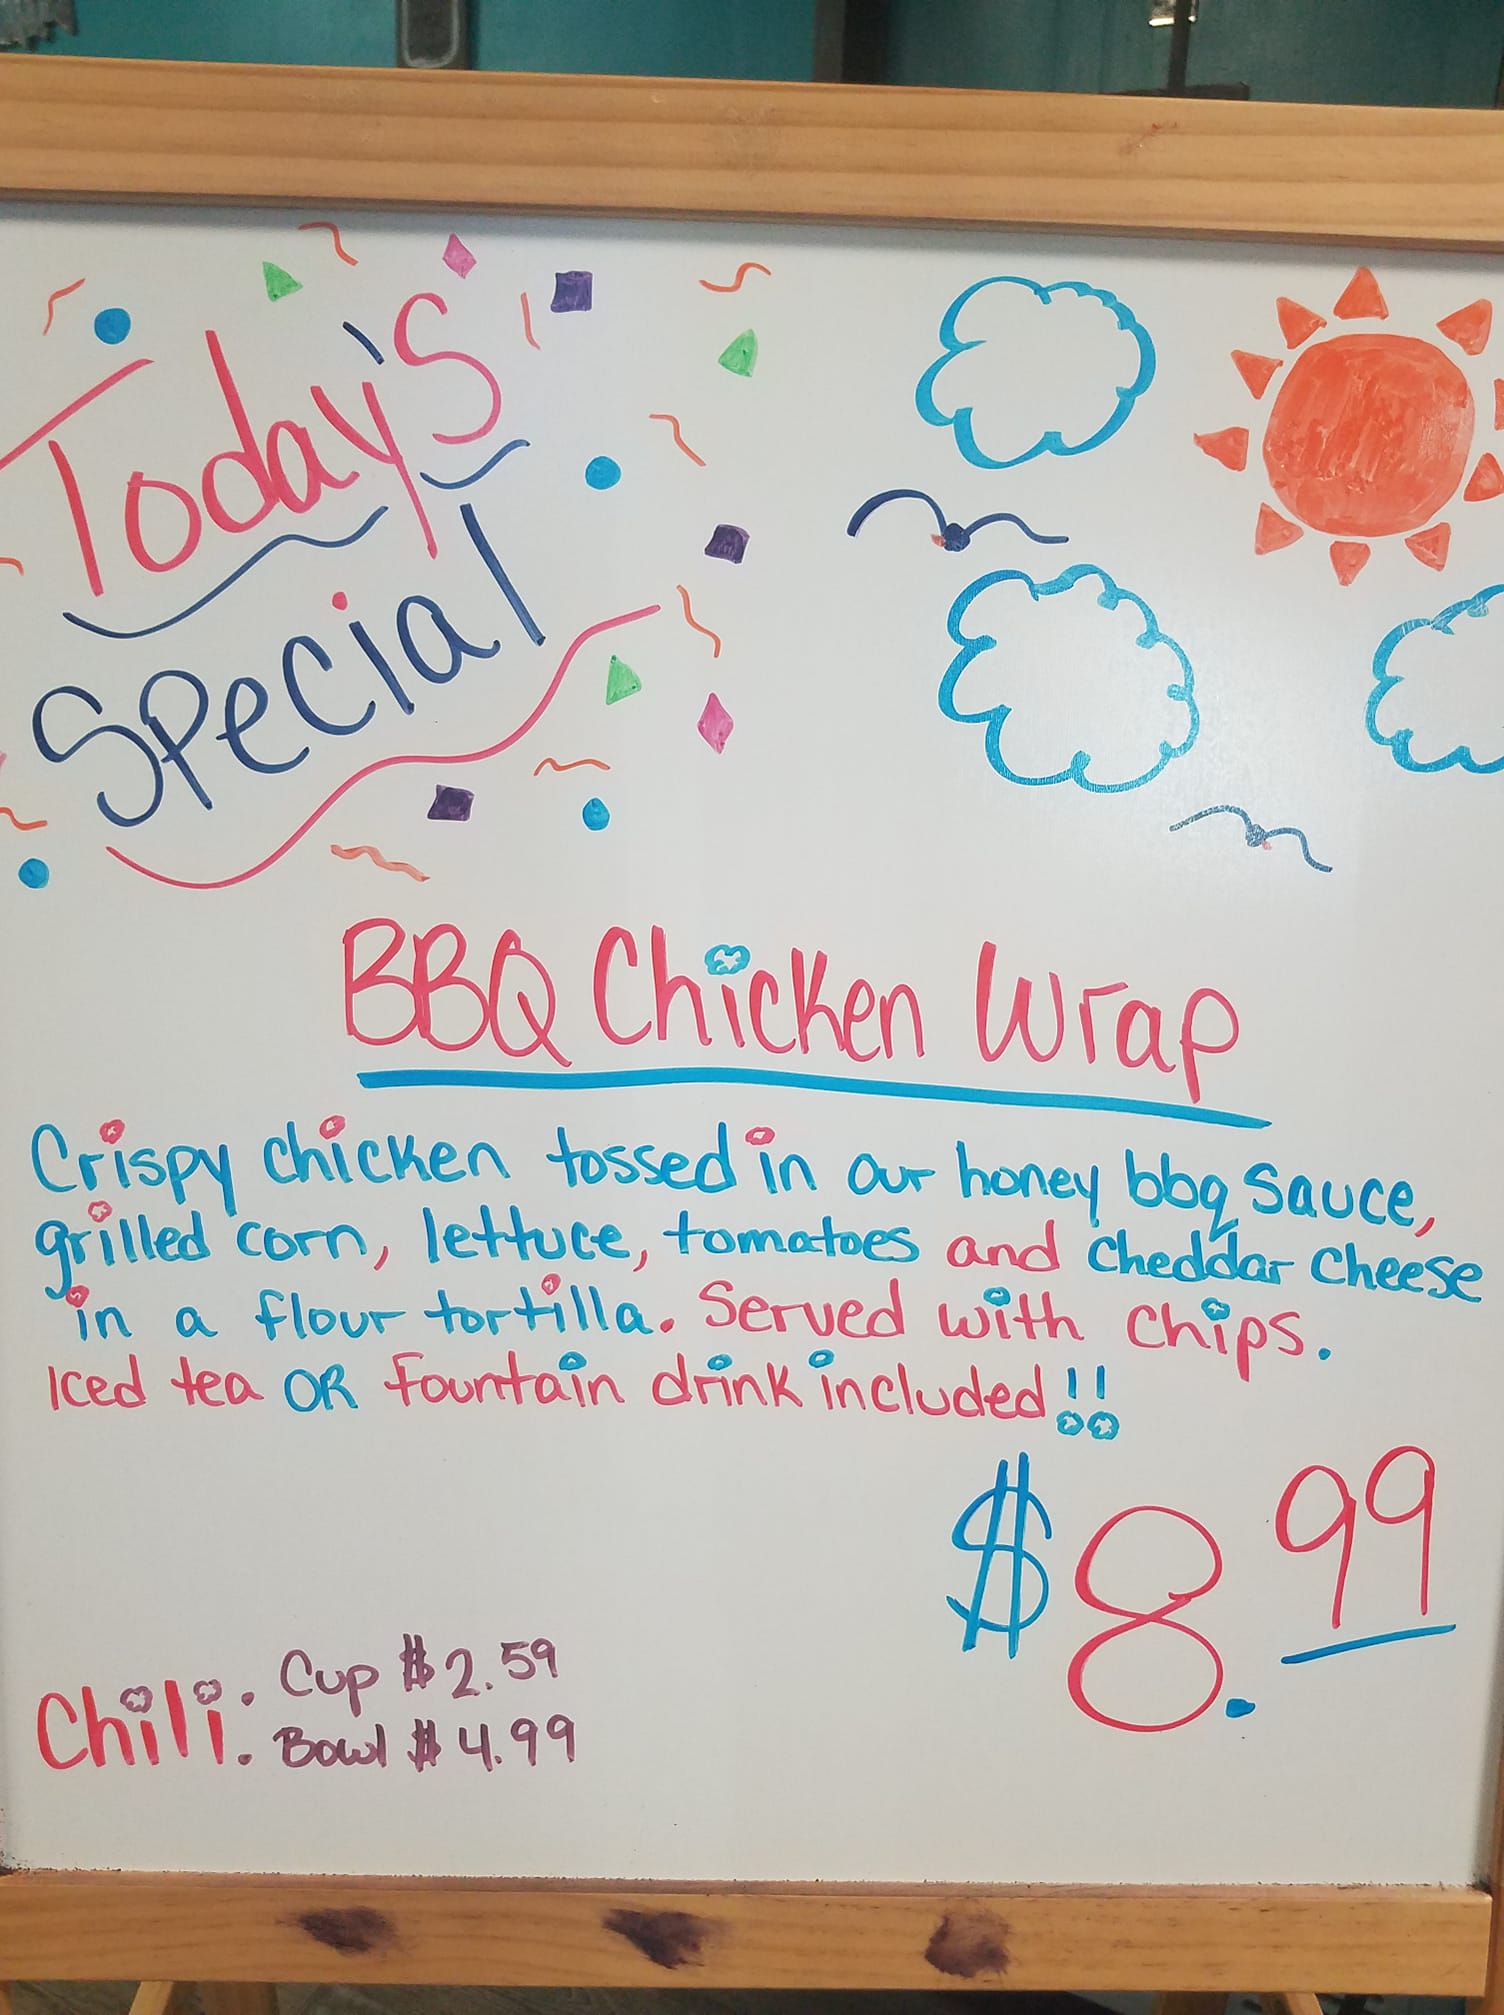 Today's
Special
BBQ Chicken Wrap
Crispy chicken tossed in our honey bbq sauce,
grilled corn, lettuce, tomatoes and cheddar cheese
in a flour tortilla. Served with chips.
Iced tea OR fountain drink included!!
$8.99
Chili: Cup $2.59
Bowl $4.99